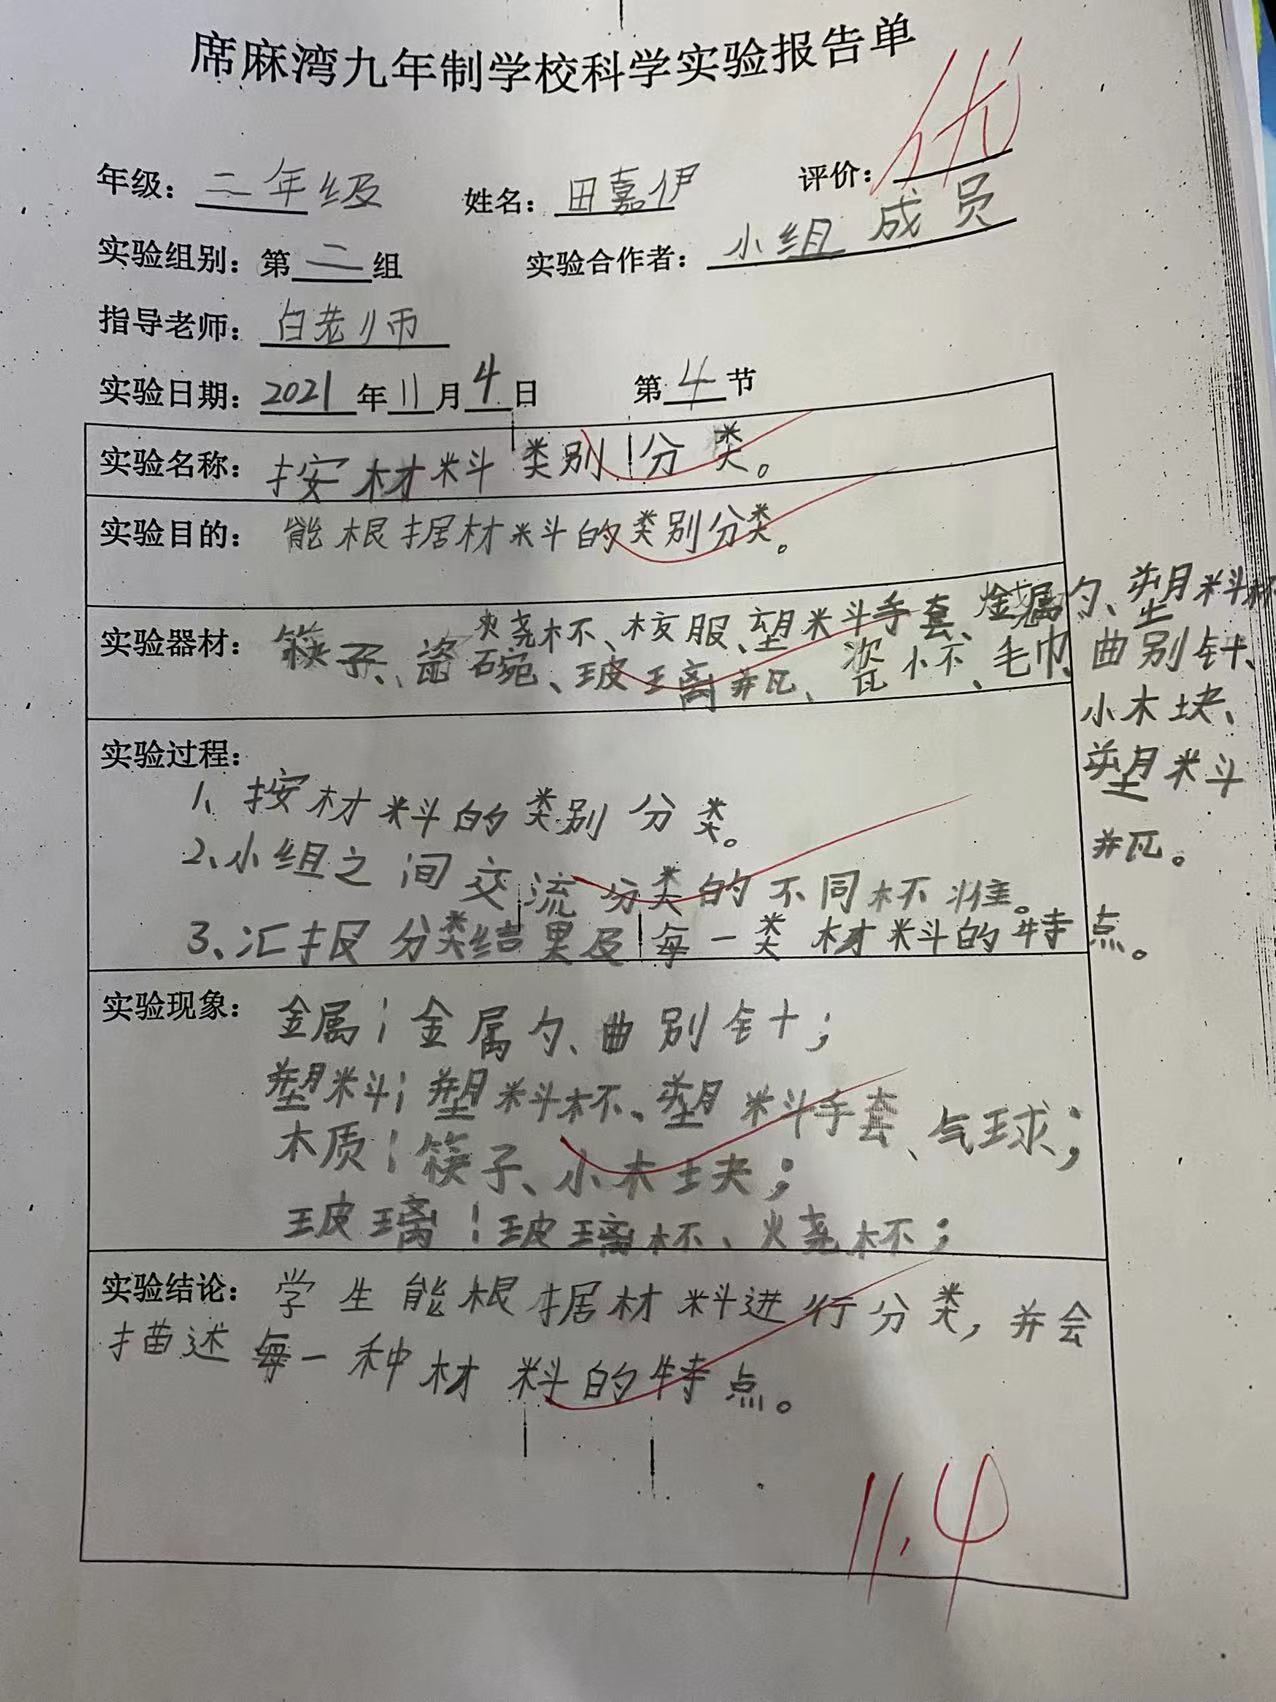 席麻湾九年制学校科学实验报告单
年级：二年级 姓名：田嘉伊 评价：优
实验组别：第二组 实验合作者：小组成员
指导老师：白老师
实验日期：2021年11月4日 第4节
实验名称：按材料类别分类。
实验目的：能根据材料的类别分类。
实验器材：筷子、瓷碗、烧杯、校服、塑料手套、金属勺、塑料杯
玻璃瓶、瓷杯、毛巾、曲别针、
小木块、
塑料
瓶。
实验过程：
1、按材料的类别分类。
2、小组之间交流分类的不同标准。
3、汇报分类结果及每一类材料的特点。
实验现象：金属：金属勺、曲别针；
塑料：塑料杯、塑料手套、气球；
木质：筷子、小木块；
玻璃：玻璃杯、烧杯；
实验结论：学生能根据材料进行分类，并会
描述每一种材料的特点。
11.4